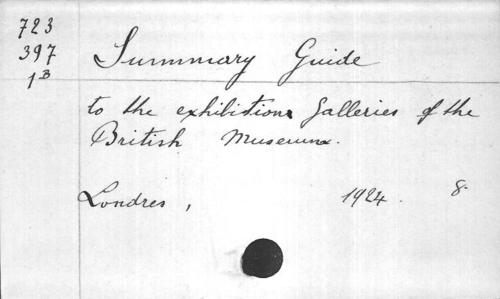 723
397
1B
Summary Guide
to the exhibitions Galleries of the
British Museum.
Londres, 1924. 8.